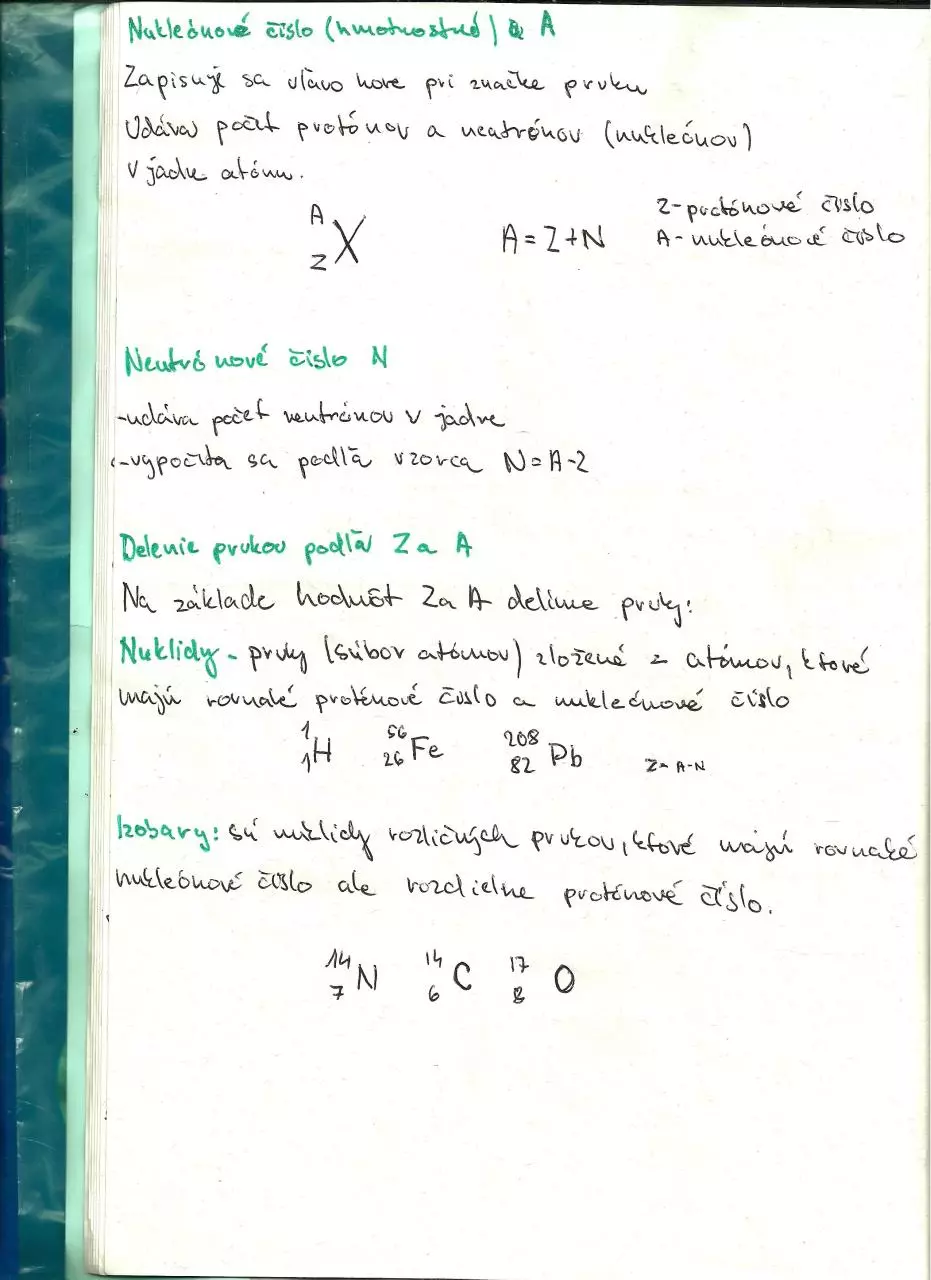 Nukleónové číslo (hmotnostné) A
Zapisuje sa vľavo hore pri značke prvku
Udáva počet protónov a neutrónov (nukleónov)
v jadre atómu.
A
Z X
A = Z + N
Z - protónové číslo
A - nukleónové číslo
Neutrónové číslo N
- udáva počet neutrónov v jadre
- vypočíta sa podľa vzorca N = A - Z
Delenie prvkov podľa Z a A
Na základe hodnôt Z a A delíme prvky:
Nuklidy - prvky (súbor atómov) zložené z atómov, ktoré
majú rovnaké protónové číslo a nukleónové číslo
1 1 H 56 26 Fe 208 82 Pb Z = A - N
Izobary: sú nuklidy rozličných prvkov, ktoré majú rovnaké
nukleónové číslo ale rozdielne protónové číslo.
14 7 N 14 6 C 17 8 O